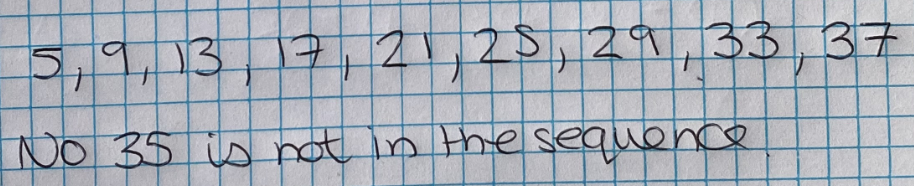 5, 9, 13, 17, 21, 25, 29, 33, 37
No 35 is not in the sequence.